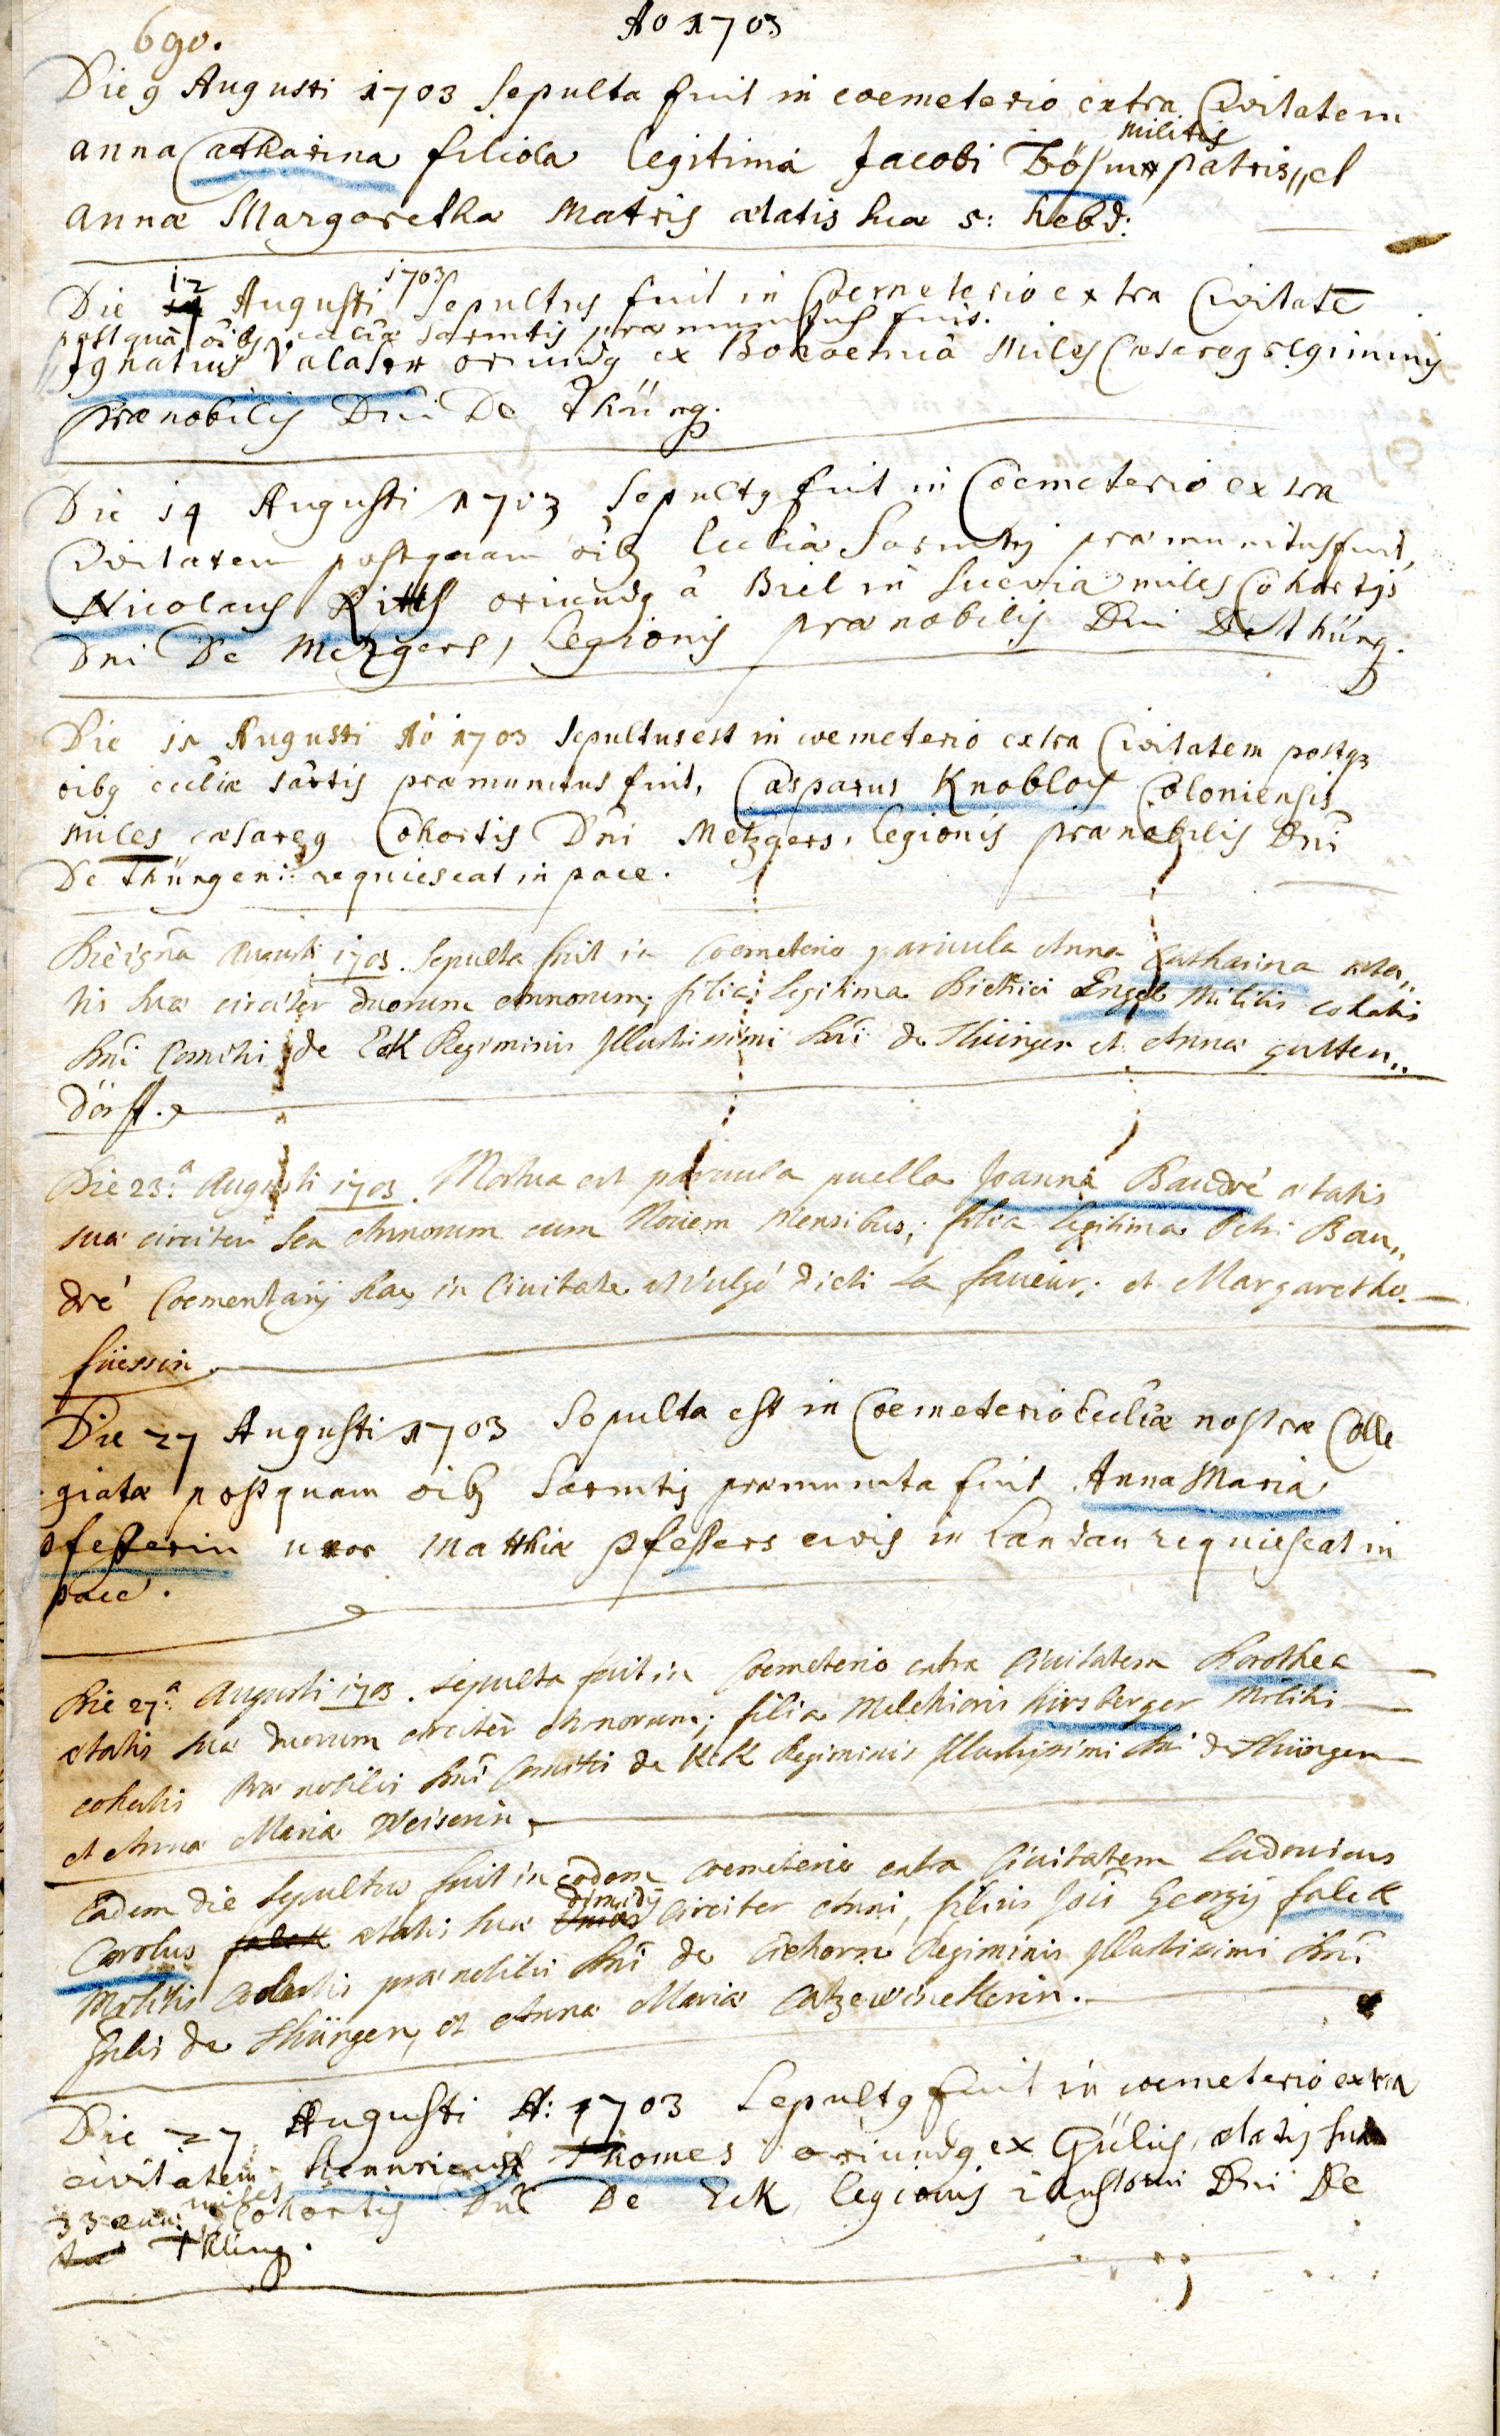 690.
Ao 1703
Die 9 Augusti 1703 sepulta fuit in coemeterio extra Civitatem
anna Catharina filiola legitima Jacobi Bösm militis patris, et
annæ Margaretha Matris ætatis suæ 5: hebd:
Die 12 Augusti 1703 Sepultus fuit in Coemeterio extra Civitatē
postquā oibus ecclīæ sacrmtis præmunitus fuit.
Ignatius Valaser oriundq ex Bohoemiâ Miles Cæsareq regiminis
Prænobilis Dni De Thüng.
Die 14 Augusti 1703 Sepultq fuit in Coemeterio extra
Civitatem postquam oibq Eccliæ Sacrmtis præmunitus fuit,
Nicolaus Ritts oriundq â Briel in Suevia miles Cohortis
Dni De Metzgers, legionis prænobilis Dni De Thüng.
Die 15 Augusti Aô 1703 sepultus est in coemeterio extra Civitatem postq3
oibq ecclîæ sācrtis præmunitus fuit, Casparus Knobloch Coloniensis
miles cæsareq Cohortis Dni Metzgers, legionis prænobilis Dnî
De Thüngen: requiescat in pace.
Augusti 1703. Sepulta fuit in Coemeterio parvula Anna Catharina æta,,
tis suæ circiter duorum annorum; filia legitima Dietrici Engel Militis cohortis
Dnî Comitis de Eck Regiminis Illustrissimi Dnî de Thüngen et Annæ gutten,,
dörff.
Die 23.a Augusti 1703. Mortua est parvula puella Joanna Baudré ætatis
suæ circiter sex Annorum cum Novem Mensibus; filia legitima Petri Bau,,
dré Coementarij hac in Civitate et vulgó dicti la faveur; et Margarethæ
füessin.
Die 27 Augusti 1703 Sepulta est in Coemeterio Eccliæ nostræ Colle
giatæ postquam oibq Sacrmtis præmunita fuit Anna Maria
Pfefferin uxor Matthiæ Pfeffers civis in Landau requiescat in
pace.
Die 27.a Augusti 1703. sepulta fuit in Coemeterio extra Civitatem Dorothea
ætatis suæ duorum circiter Annorum; filia Melchioris hirsberger Militis
cohortis Præ nobilis Dnî Comitis de Keck Regiminis Illustrissimi Dni de Thüngen
et Anna Maria Weiserin.
Eadem die Sepultus fuit in eodem coemeterio extra Civitatem Ludovicus
Carolus falck ætatis suæ dimidij Circiter Anni, filius Joîs Georgij falck
Militis Cohortis præ nobilis Dnî de Aichorn Regiminis Illustrissimi Dnî
de Thüngen, et Annæ Mariæ Catzewinckkerin.
Die 27 Augusti A: 1703 Sepultq fuit in coemeterio extra
civitatem Hennricus Thomes oriundq ex Gülich, ætatis suæ
33 ann: miles Cohortis Dnî De Eck, legionis Dni De
Thüng.